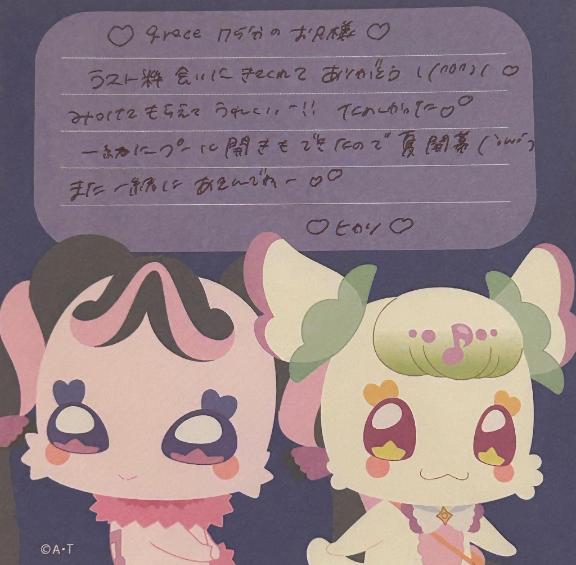 ♡ grace クラブの お兄様 ♡
ラスト枠 会いにきてくれて ありがとう \(^o^)/ ♡
みつけてもらえて うれしい〜!! たのしかった♡♡
一緒にプール開きもできたので 夏開幕 (˙ω˙)
また 一緒に あそんでね〜 ♡♡
♡ ヒカリ ♡
©A・T